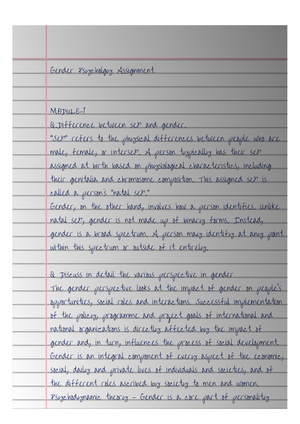 Gender Psychology Assignment
MODULE-1
Q. Difference between sex and gender.
"Sex" refers to the physical differences between people who are
male, female, or intersex. A person typically has their sex
assigned at birth based on physiological characteristics, including
their genitalia and chromosome composition. This assigned sex is
called a person's "natal sex."
Gender, on the other hand, involves how a person identifies. Unlike
natal sex, gender is not made up of binary forms. Instead,
gender is a broad spectrum. A person may identify at any point
within this spectrum or outside of it entirely.
Q. Discuss in detail the various perspective in gender
The gender perspective looks at the impact of gender on people's
opportunities, social roles and interactions. Successful implementation
of the policy, programme and project goals of international and
national organizations is directly affected by the impact of
gender and, in turn, influences the process of social development.
Gender is an integral component of every aspect of the economic,
social, daily and private lives of individuals and societies, and of
the different roles ascribed by society to men and women.
Psychodynamic theory - Gender is a core part of personality